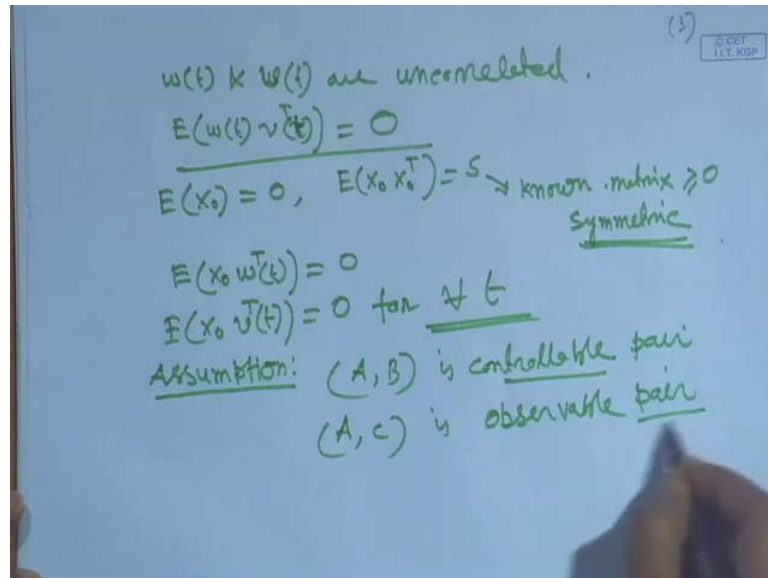 (3)
© CET
I.I.T. KGP
w(t) & v(t) are uncorrelated.
E(w(t) v^T(t)) = 0
E(x₀) = 0, E(x₀ x₀^T) = S → known matrix ≥ 0
symmetric
E(x₀ w^T(t)) = 0
E(x₀ v^T(t)) = 0 for ∀ t
Assumption: (A, B) is controllable pair
(A, C) is observable pair